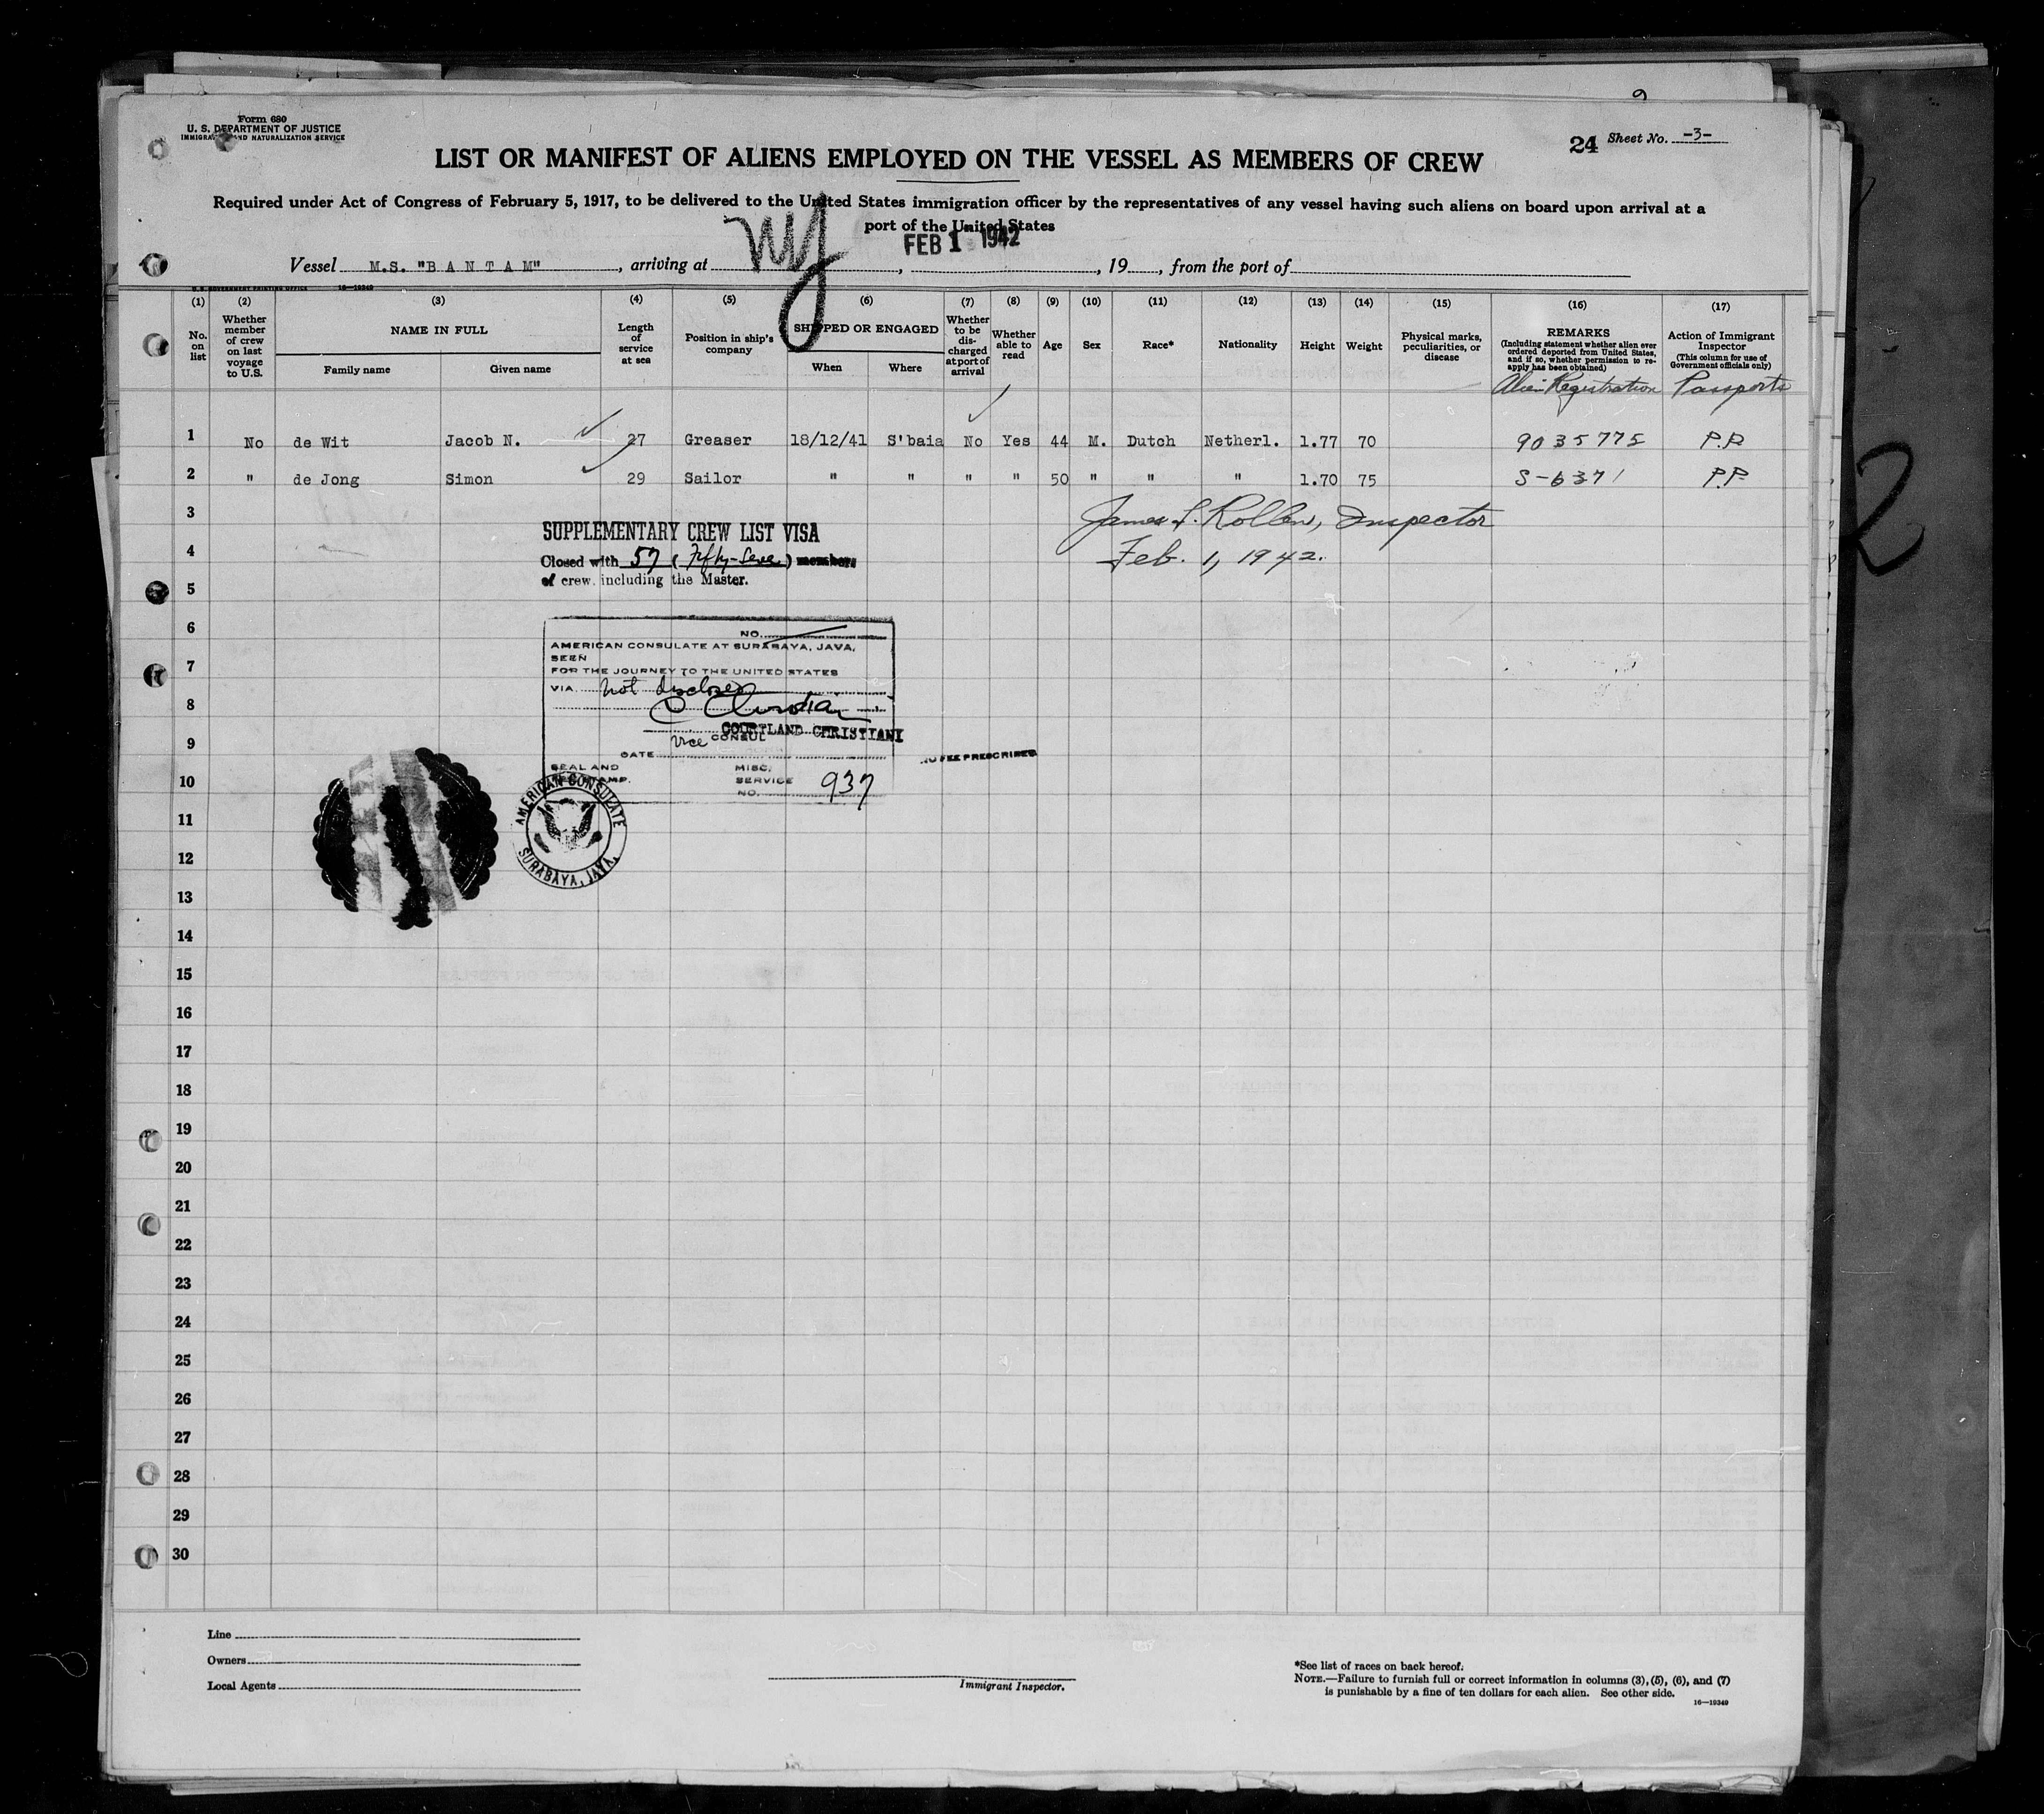 Form 680
U. S. DEPARTMENT OF JUSTICE
IMMIGRATION AND NATURALIZATION SERVICE
24 Sheet No. -3-
LIST OR MANIFEST OF ALIENS EMPLOYED ON THE VESSEL AS MEMBERS OF CREW
Required under Act of Congress of February 5, 1917, to be delivered to the United States immigration officer by the representatives of any vessel having such aliens on board upon arrival at a
port of the United States
Vessel M.S. "B A N T A M", arriving at NY, FEB 1 1942, 19, from the port of
U. S. GOVERNMENT PRINTING OFFICE 16—19349
(1) (2) (3) (4) (5) (6) (7) (8) (9) (10) (11) (12) (13) (14) (15) (16) (17)
No. on list
Whether member of crew on last voyage to U.S.
NAME IN FULL
Family name Given name
Length of service at sea
Position in ship's company
SHIPPED OR ENGAGED
When Where
Whether to be discharged at port of arrival
Whether able to read
Age
Sex
Race*
Nationality
Height
Weight
Physical marks, peculiarities, or disease
REMARKS
(Including statement whether alien ever ordered deported from United States, and if so, whether permission to re-apply has been obtained)
Action of Immigrant Inspector
(This column for use of Government officials only)
Alien Registration Passports
1 No de Wit Jacob N. 27 Greaser 18/12/41 S'baia No Yes 44 M. Dutch Netherl. 1.77 70 9035775 P.P.
2 " de Jong Simon 29 Sailor " " " " 50 " " " 1.70 75 S-6371 P.P.
3
James Inspector
4
Feb. 1, 1942.
SUPPLEMENTARY CREW LIST VISA
Closed with 57 (Fifty-Seven) members
of crew, including the Master.
5
6
NO.
AMERICAN CONSULATE AT SURABAYA, JAVA,
SEEN
7
FOR THE JOURNEY TO THE UNITED STATES
VIA not disclosed
8
COURTLAND CHRISTIANI
9
Vice CONSUL
DATE
NO FEE PRESCRIBED
SEAL AND STAMP.
MISC. SERVICE NO. 937
10
AMERICAN CONSULATE
SURABAYA, JAVA.
11
12
13
14
15
16
17
18
19
20
21
22
23
24
25
26
27
28
29
30
Line
Owners
Local Agents
Immigrant Inspector.
*See list of races on back hereof.
NOTE.—Failure to furnish full or correct information in columns (3), (5), (6), and (7)
is punishable by a fine of ten dollars for each alien. See other side.
16—19349
2